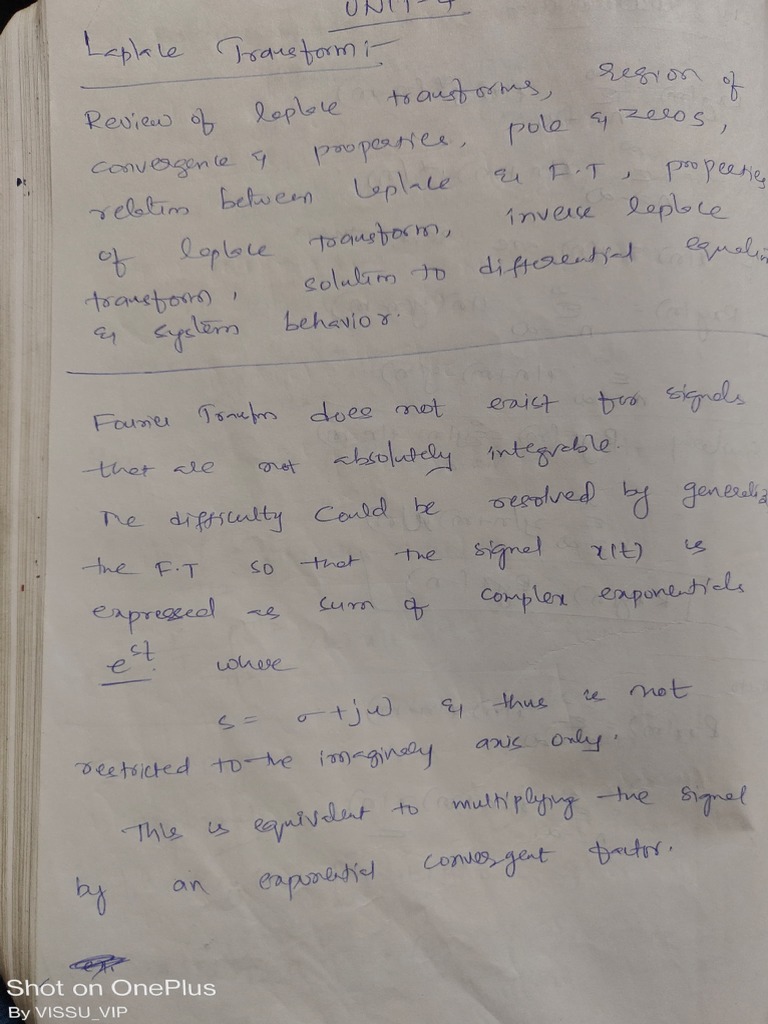 UNIT-4
Laplace Transform:-
Review of laplace transforms, region of
convergence & properties, pole & zeros,
relation between laplace & F.T, properties
of laplace transform, inverse laplace
transform, solution to differential
& system behavior.
Fourier Transfm does not exist for signals
that are not absolutely integrable.
The difficulty could be resolved by
the F.T so that the signal x(t) is
expressed as sum of complex exponentials
e^st. where
s = σ+jω & thus is not
restricted to the imaginary axis only.
This is equivalent to multiplying the signal
by an exponential convergent factor.
Shot on OnePlus
By VISSU_VIP